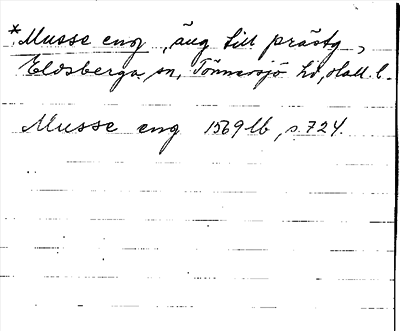 *Musse eng, äng till prästg,
Eldsberga sn, Tönnersjö hd, Hall. l.
Musse eng 1569 lb, s. 724.